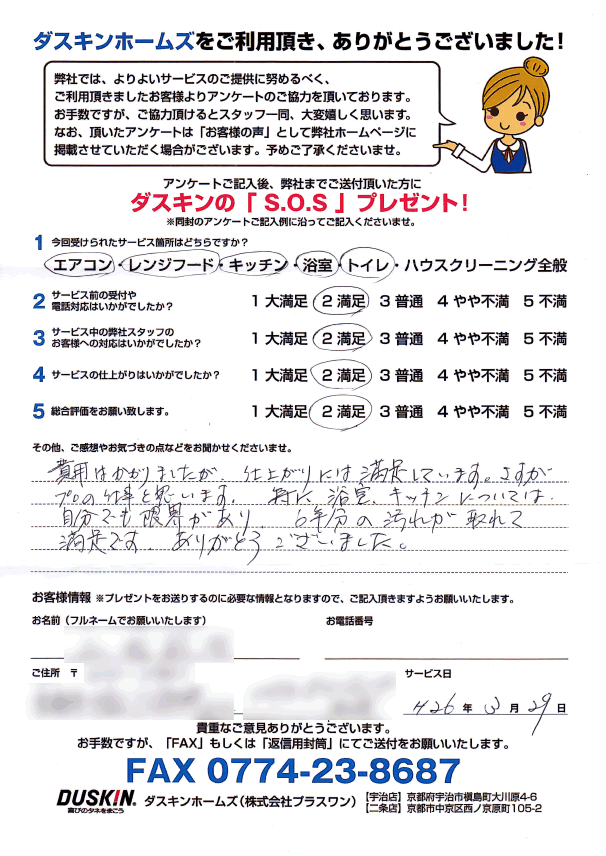 ダスキンホームズをご利用頂き、ありがとうございました!
弊社では、よりよいサービスのご提供に努めるべく、
ご利用頂きましたお客様よりアンケートのご協力を頂いております。
お手数ですが、ご協力頂けるとスタッフ一同、大変嬉しく思います。
なお、頂いたアンケートは「お客様の声」として弊社ホームページに
掲載させていただく場合がございます。予めご了承くださいませ。
アンケートご記入後、弊社までご送付頂いた方に
ダスキンの「S.O.S」プレゼント!
※同封のアンケートご記入例に沿ってご記入くださいませ。
1 今回受けられたサービス箇所はどちらですか?
エアコン・レンジフード・キッチン・浴室・トイレ・ハウスクリーニング全般
2 サービス前の受付や
電話対応はいかがでしたか?
1 大満足 2 満足 3 普通 4 やや不満 5 不満
3 サービス中の弊社スタッフの
お客様への対応はいかがでしたか?
1 大満足 2 満足 3 普通 4 やや不満 5 不満
4 サービスの仕上がりはいかがでしたか?
1 大満足 2 満足 3 普通 4 やや不満 5 不満
5 総合評価をお願い致します。
1 大満足 2 満足 3 普通 4 やや不満 5 不満
その他、ご感想やお気づきの点などをお聞かせくださいませ。
費用はかかりましたが、仕上がりには満足しています。さすが
プロの仕事と思います。特に浴室、キッチンについては、
自分でも限界があり、6年分の汚れが取れて
満足です。ありがとうございました。
お客様情報 ※プレゼントをお送りするのに必要な情報となりますので、ご記入頂きますようお願いいたします。
お名前(フルネームでお願いいたします) お電話番号
ご住所 〒 サービス日
H26 年 3 月 29 日
貴重なご意見ありがとうございます。
お手数ですが、「FAX」もしくは「返信用封筒」にてご送付をお願いいたします。
FAX 0774-23-8687
DUSKIN 喜びのタネをまこう ダスキンホームズ(株式会社プラスワン)
【宇治店】京都府宇治市槇島町大川原4-6
【二条店】京都市中京区西ノ京原町105-2